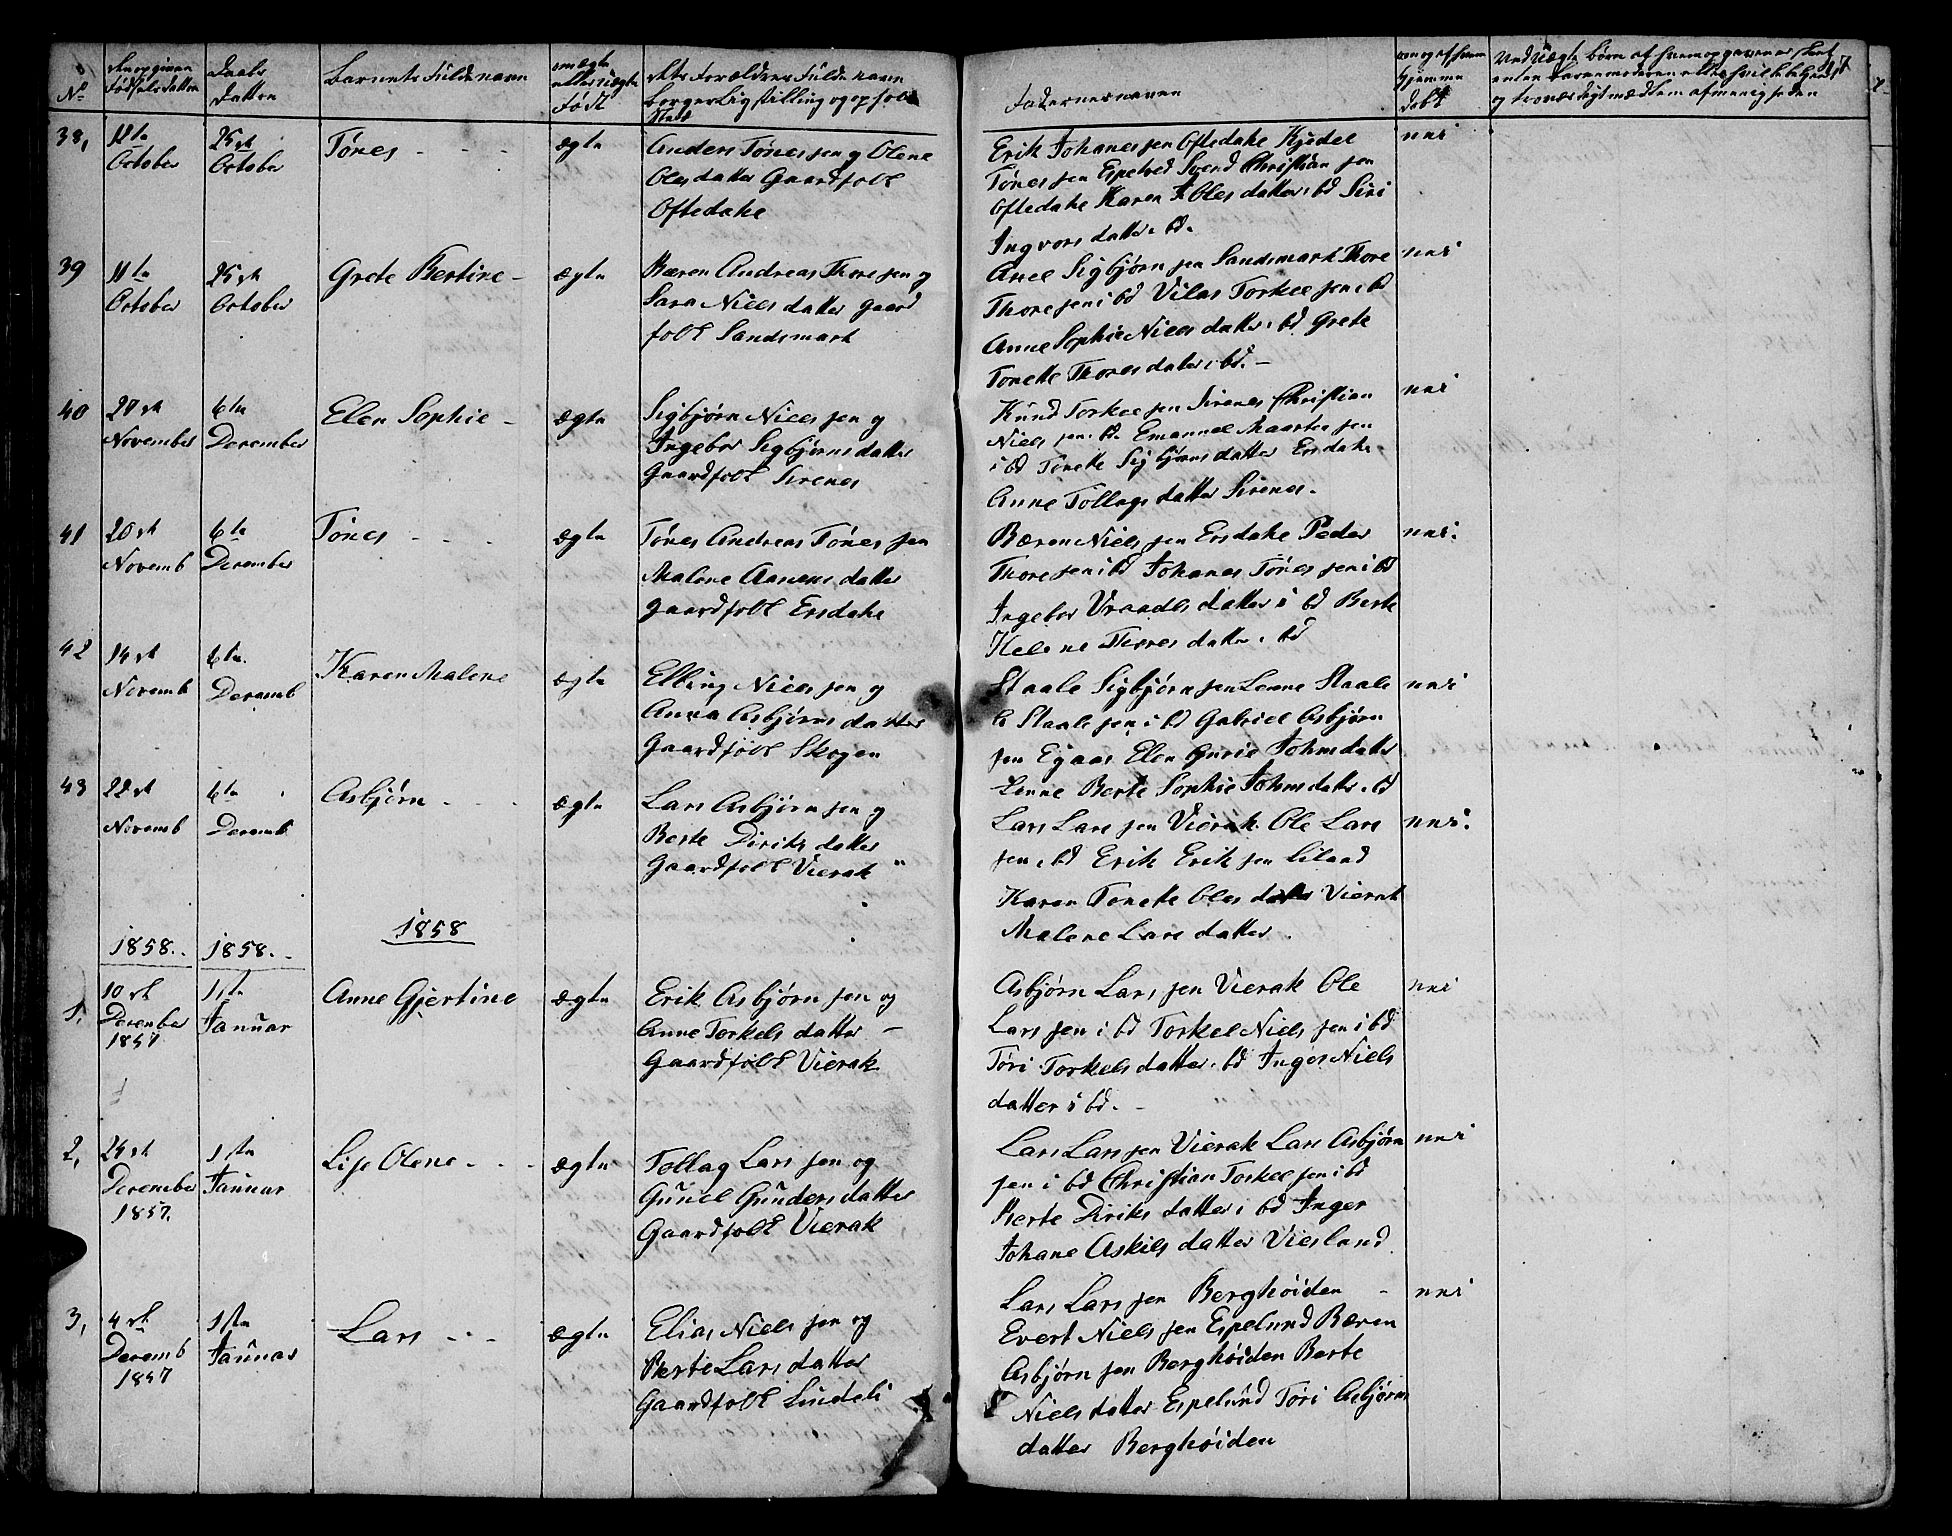 No
den opgivne
Fødsels datten
Daabs
Datten
Barnets Fuldenavn
om ægte
eller uægte
født
dets Forældres Fulde navn
borgerlig stilling og opholds
sted
Faderne navn
Ved uægte børn af hvem opgaven er skeet
38,
11te
October
25de
October
Tönes - - -
ægte
Anders Tönes sen og Olene
Oles datter Gaardfolk
Oftedahe
Erik Johanes sen Oftedahe Kjedel
Tönes sen Espetved Svend Christian sen
Oftedahe Karen Oles datter i bd Siri
Ingvors datter i bd.
nei
39
11te
October
25de
October
Grete Bertine -
ægte
Bæren Andreas Thore sen og
Sara Niels datter gaard
folk Sandsmark
Anel Sigbjørn sen Sandsmark Thore
Thore sen i bd Vilas Torkel sen i bd
Anne Sophie Niels datter i bd Grete
Tonette Thores datter i bd. -
nei
40
November
6te
December
Elen Sophie -
ægte
Sigbjørn Niels sen og
Ingebor Sigbjørns datter
Gaardfolk Sirenes
Knud Torkel sen Sirenes Christian
Niels sen i bd. Emanuel Maartin sen
i bd Tonette Sigbjørns datter Ersdahe
Anne Tollags datter Sirenes.
nei
41
20de
Novemb
6te
December
Tönes - - -
ægte
Tönes Andreas Tönes sen
Malene Aanens datter
gaardfolk Ersdahe
Bæren Niels sen Ersdahe Peder
Thore sen i bd Johanes Tönes sen i bd
Ingebor Vraades datter i bd Berte
Helene Thores datter i bd
nei.
42
14de
Novemb
6te.
Decemb
Karen Malene
ægte
Elling Niels sen og
Anna Asbjørns datter
Gaardfolk Skogen
Staale Sigbjørn sen Lenne Staale
Staale sen i bd Gabriel Asbjørn
sen Egaas Elen Gurie Johns datter
Lenne Berte Sophie Johns datter i bd
nei
43
22de
Novemb
6te
Decemb
Asbjørn - - -
ægte
Lars Asbjørn sen og
Berte Diriks datter
Gaardfolk Vierak "
Lars Lars sen Vierak Ole Lars
sen i bd Erik Erik sen Liland
Karen Tonette Oles datter Vierak
Malene Lars datter.
nei.
1858..
1858..
1858
1.
10de
December
1857
1ste
Januar
Anne Gjertine
ægte
Erik Asbjørn sen og
Anne Torkels datter -
Gaardfolk Vierak
Asbjørn Lars sen Vierak Ole
Lars sen i bd Torkel Niels sen i bd
Töri Torkels datter i bd Inger Niels
datter i bd. -
nei
2,
24de
December
1857.
1ste
Januar
Lise Olene - - -
ægte
Tollag Lars sen og
Gunel Gunders datter
Gaardfolk Vierak
Lars Lars sen Vierak Lars Asbjørn
sen i bd Christian Torkel sen i bd
Berte Diriks datter i bd Inger
Johane Askils datter Viesland
nei
3,
4de
Decemb
1857
1ste
Januar
Lars - - -
ægte
Elias Niels sen og
Berte Lars datter
Gaardfolk Lindeli
Lars Lars sen Berghöiden -
Evert Niels sen Espelund Bæren
Asbjørn sen Berghöiden Berte
Niels datter Espelund Töri Asbjørns
datter Berghöiden
nei